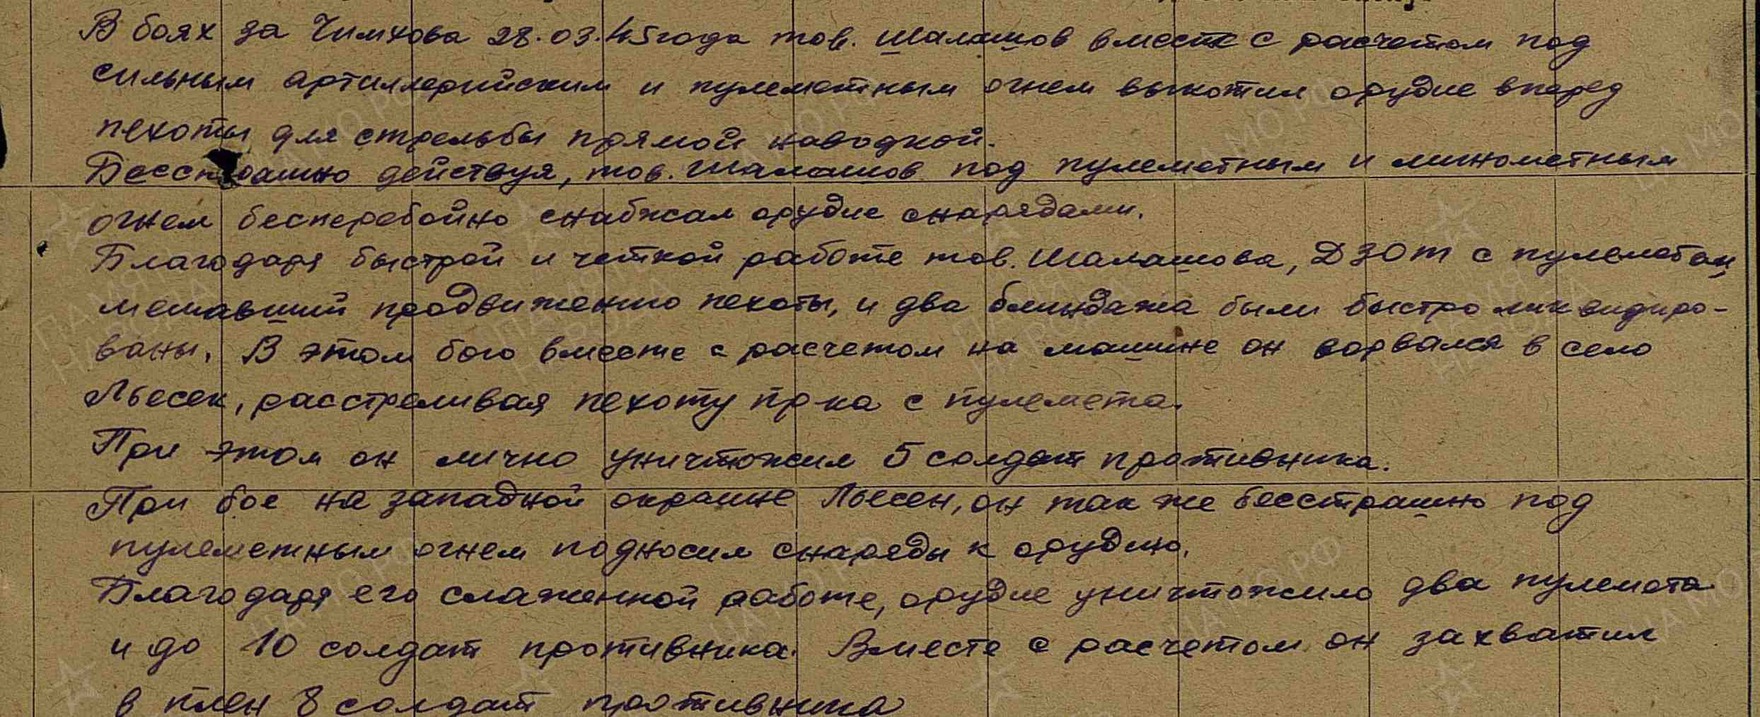 В боях за Чимхова 28.03.45 года тов. Шалашов вместе с расчетом под
сильным артиллерийским и пулеметным огнем выкотил орудие вперед
пехоты для стрельбы прямой наводкой.
Бесстрашно действуя, тов. Шалашов под пулеметным и минометным
огнем бесперебойно снабжал орудие снарядами.
Благодаря быстрой и четкой работе тов. Шалашова, ДЗОТ с пулеметом,
мешавший продвижению пехоты, и два блиндажа были быстро ликвидиро-
ваны. В этом бою вместе с расчетом на машине он ворвался в село
Льесек, расстреливая пехоту пр-ка с пулемета.
При этом он лично уничтожил 5 солдат противника.
При бое на западной окраине Льесен, он так же бесстрашно под
пулеметным огнем подносил снаряды к орудию.
Благодаря его слаженной работе, орудие уничтожило два пулемета
и до 10 солдат противника. Вместе с расчетом он захватил
в плен 8 солдат противника